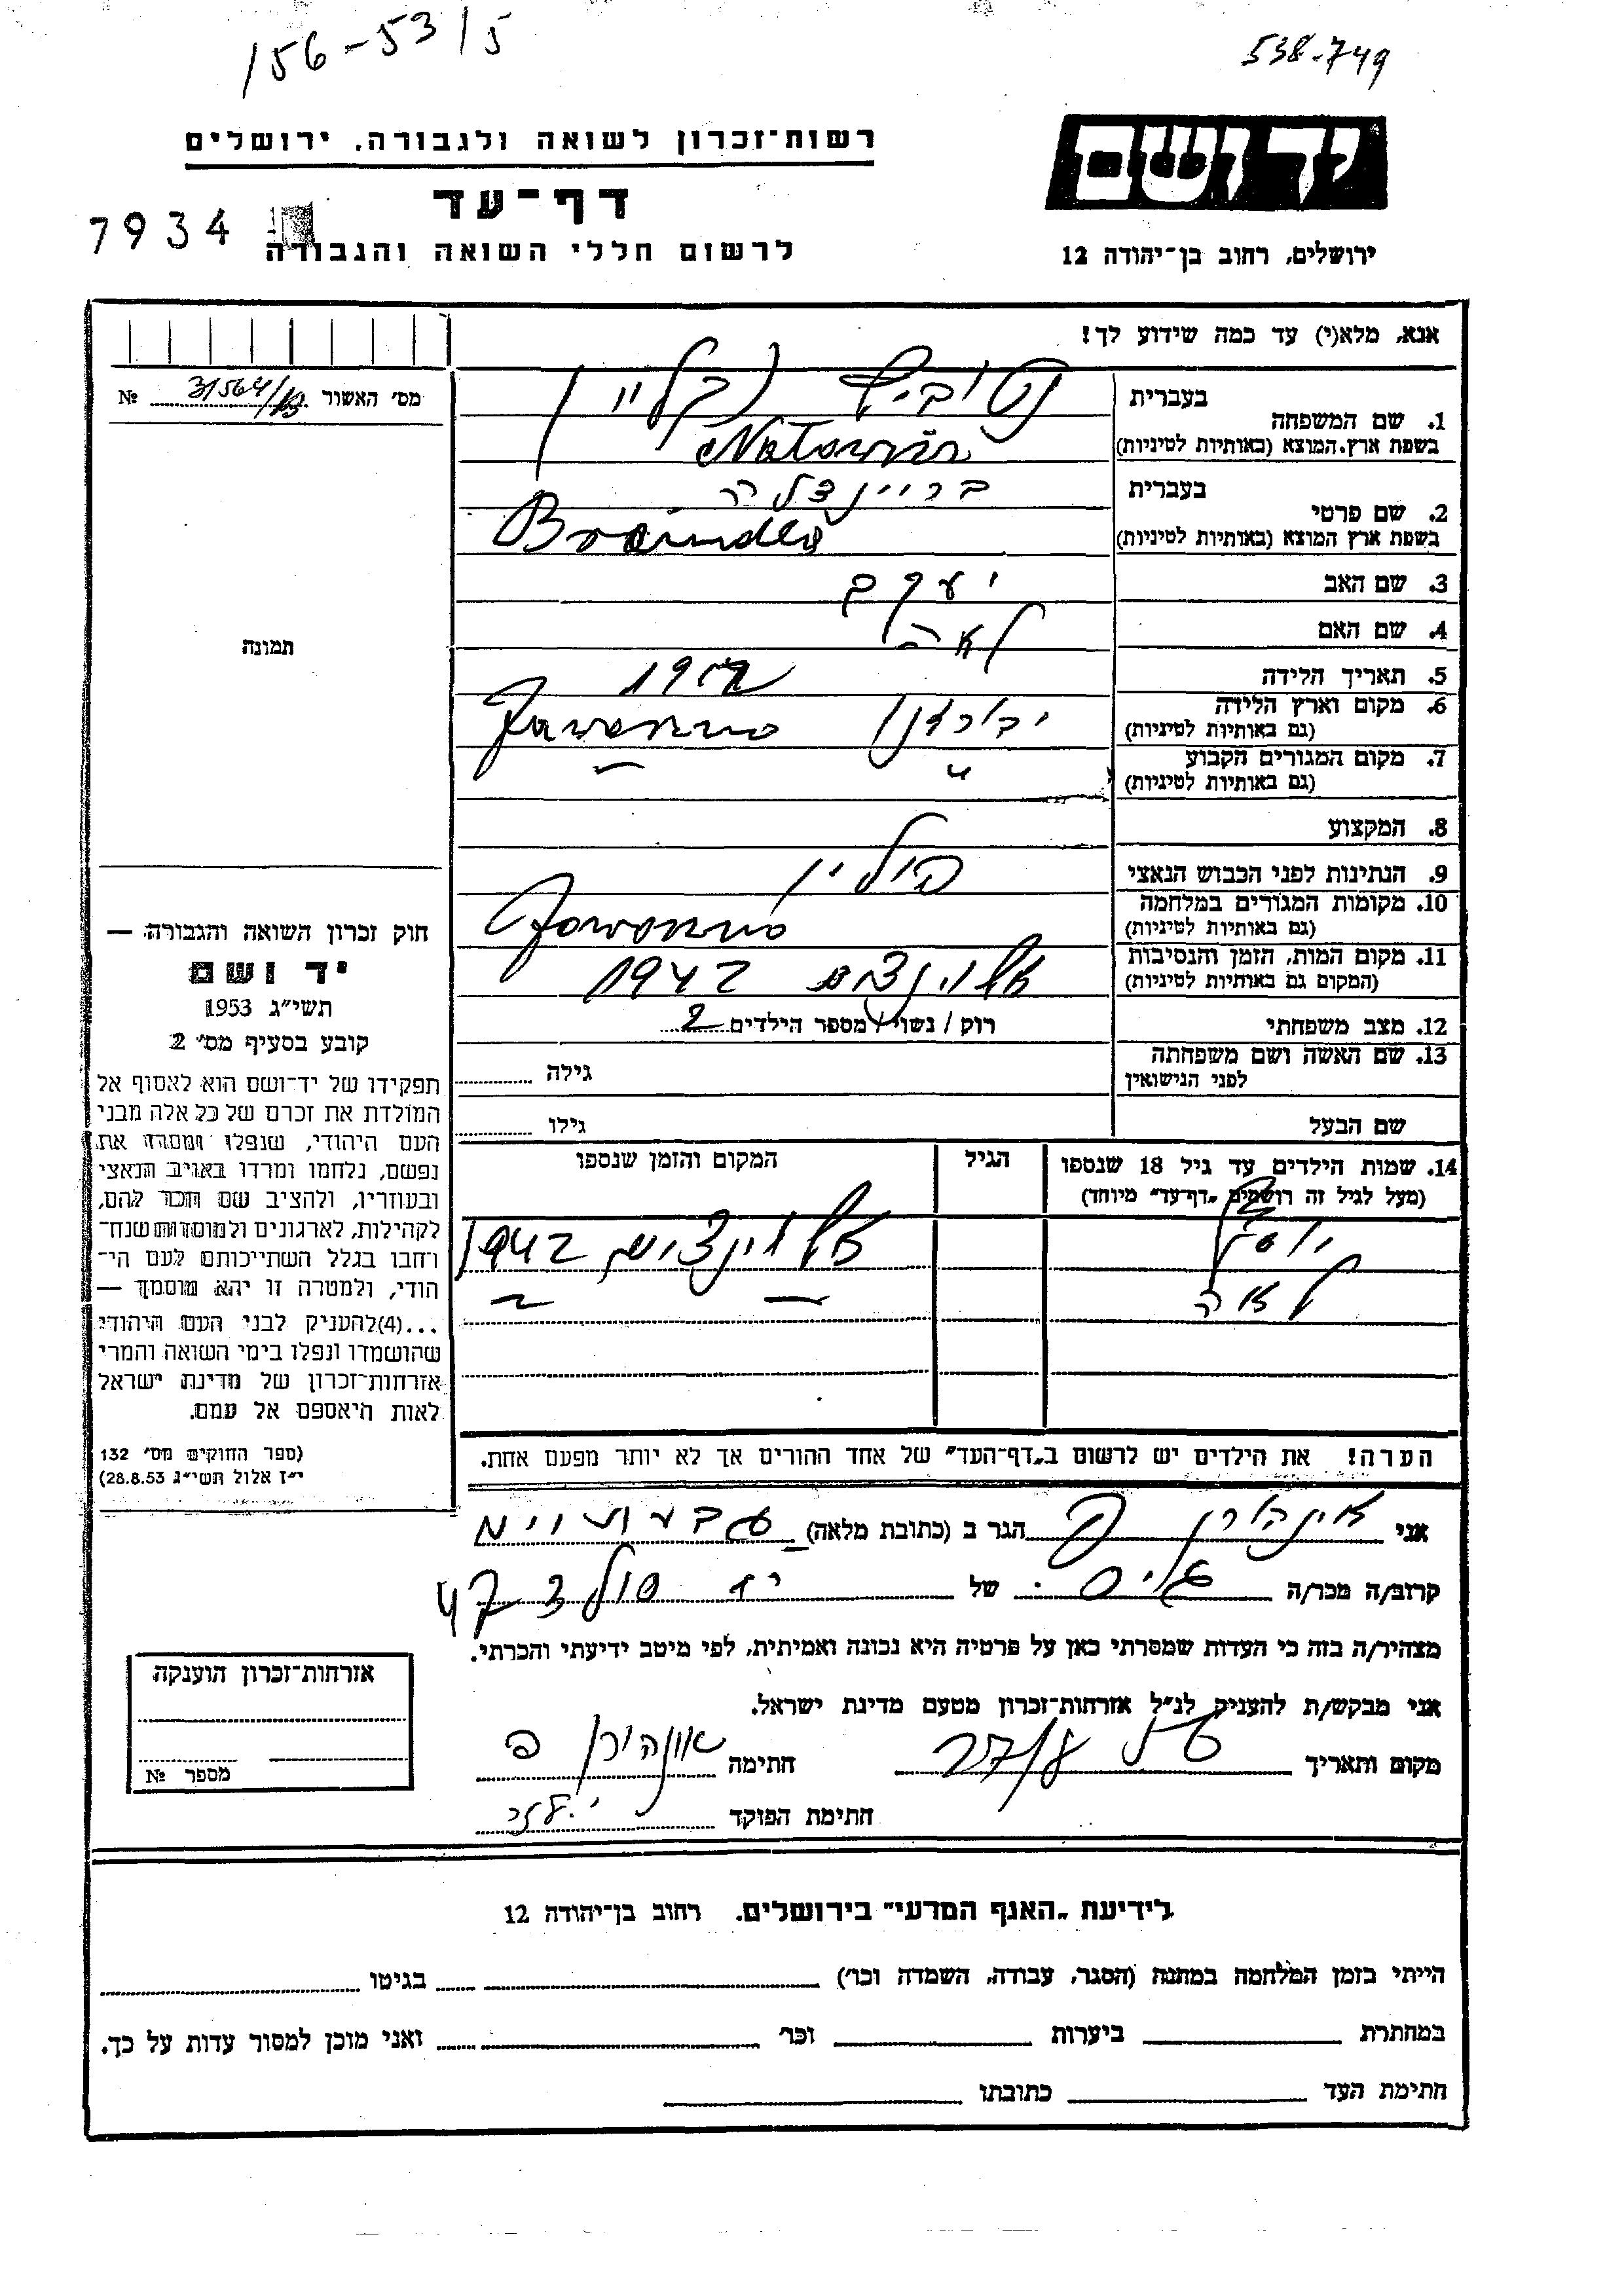 156-5315
538-749
יד ושם
רשות־זכרון לשואה ולגבורה, ירושלים
דף־עד
7934
לרשום חללי השואה והגבורה
ירושלים, רחוב בן־יהודה 12
אנא, מלא(י) עד כמה שידוע לך!
מס' האשור № 31564/
1. שם המשפחה בעברית נטוביץ (קליין)
בשפת ארץ המוצא (באותיות לטיניות)
2. שם פרטי בעברית בריינדלה
בשפת ארץ המוצא (באותיות לטיניות) Braindla
3. שם האב יעקב
4. שם האם לאה
5. תאריך הלידה
6. מקום וארץ הלידה (גם באותיות לטיניות) Jaworzno
7. מקום המגורים הקבוע (גם באותיות לטיניות) " "
8. המקצוע
9. הנתינות לפני הכבוש הנאצי פולין
10. מקומות המגורים במלחמה (גם באותיות לטיניות) Jaworzno
11. מקום המות, הזמן והנסיבות (המקום גם באותיות לטיניות) 1942
12. מצב משפחתי רווק / נשוי / מספר הילדים 2
13. שם האשה ושם משפחתה לפני הנישואין גילה
שם הבעל גילו
14. שמות הילדים עד גיל 18 שנספו (מעל לגיל זה רושמים "דף־עד" מיוחד) הגיל המקום והזמן שנספו
1942
לאה
הערה! את הילדים יש לרשום ב"דף־העד" של אחד ההורים אך לא יותר מפעם אחת.
תמונה
חוק זכרון השואה והגבורה —
יד ושם
תשי״ג 1953
קובע בסעיף מס' 2
תפקידו של יד־ושם הוא לאסוף אל
המולדת את זכרם של כל אלה מבני
העם היהודי, שנפלו ומסרו את
נפשם, נלחמו ומרדו באויב הנאצי
ובעוזריו, ולהציב שם וזכר להם,
לקהילות, לארגונים ולמוסדות שנח־
רבו בגלל השתייכותם לעם הי־
הודי, ולמטרה זו יהא מוסמך —
...(4)להעניק לבני העם היהודי
שהושמדו ונפלו בימי השואה והמרי
אזרחות־זכרון של מדינת ישראל
לאות היאספם אל עמם.
(ספר החוקים מס' 132
י״ז אלול תשי״ג 28.8.53)
אני הגר ב (כתובת מלאה)
קרוב/ה מכר/ה של
47
מצהיר/ה בזה כי העדות שמסרתי כאן על פרטיה היא נכונה ואמיתית, לפי מיטב ידיעתי והכרתי.
אני מבקש/ת להעניק לנ״ל אזרחות־זכרון מטעם מדינת ישראל.
מקום ותאריך 27/8 חתימה
חתימת הפוקד
אזרחות־זכרון הוענקה
מספר №
לידיעת "האגף המדעי" בירושלים. רחוב בן־יהודה 12
הייתי בזמן המלחמה במחנה (הסגר, עבודה, השמדה וכו') בגיטו
במחתרת ביערות וכו' ואני מוכן למסור עדות על כך.
חתימת העד כתובתו